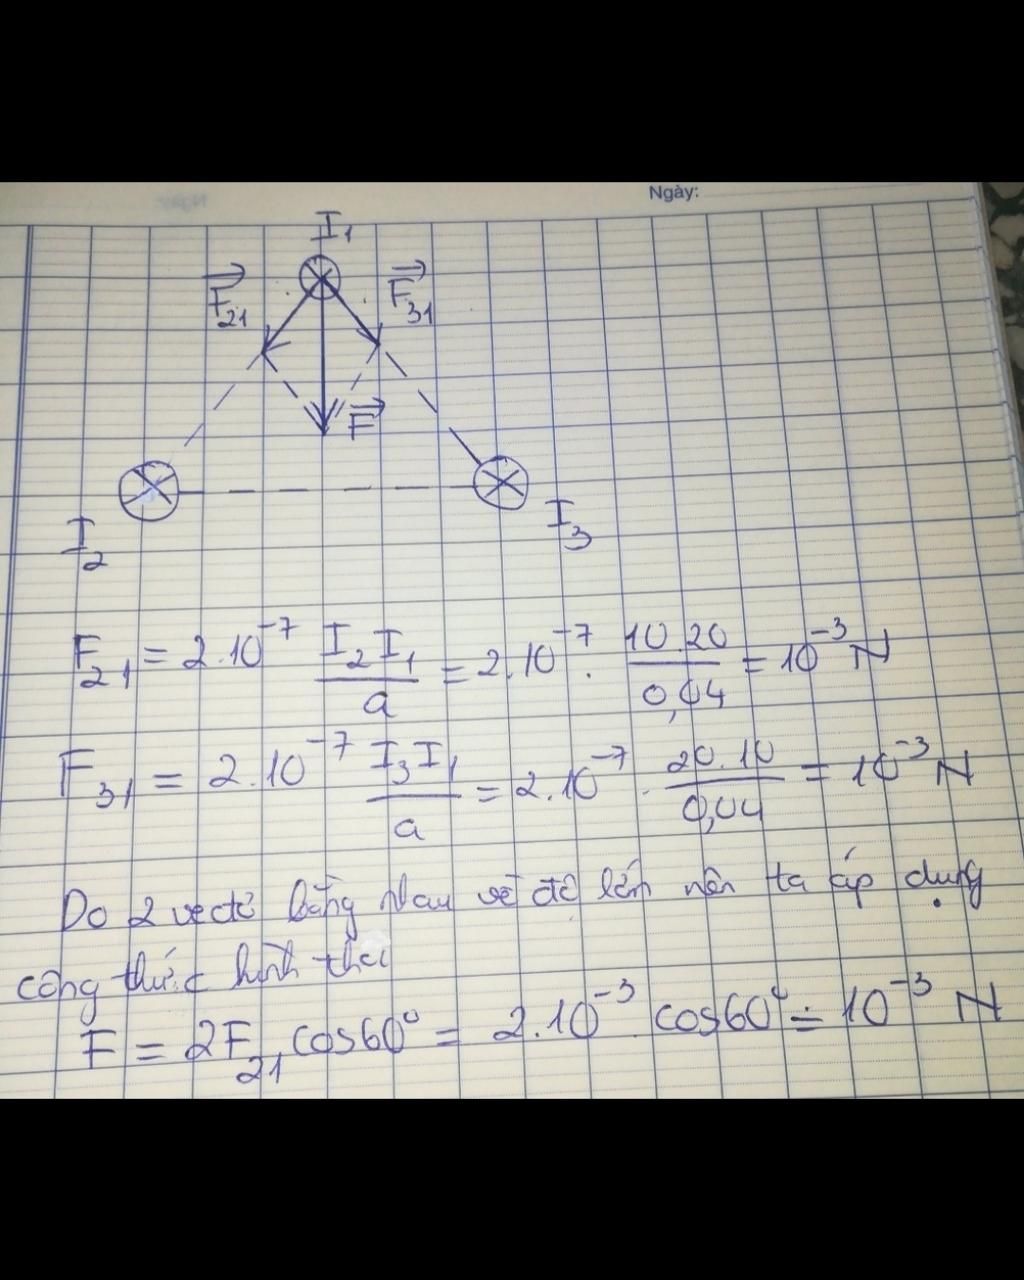 Ngày:
I₁
F₂₁
F₃₁
F
I₂
I₃
F₂₁ = 2.10⁻⁷ I₂I₁/a = 2.10⁻⁷. 10.20/0,04 = 10⁻³ N
F₃₁ = 2.10⁻⁷ I₃I₁/a = 2.10⁻⁷. 20.10/0,04 = 10⁻³ N
Do 2 vectơ bằng nhau về độ lớn nên ta áp dụng
công thức hình thoi
F = 2F₂₁ cos60° = 2.10⁻³. cos60° = 10⁻³ N